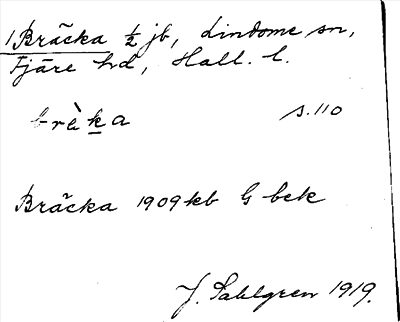 1 Bräcka ½ jb, Lindome sn,
Fjäre hd, Hall. l.
brὰka s. 110
Bräcka 1909 kb G bek
J. Sahlgren 1919.